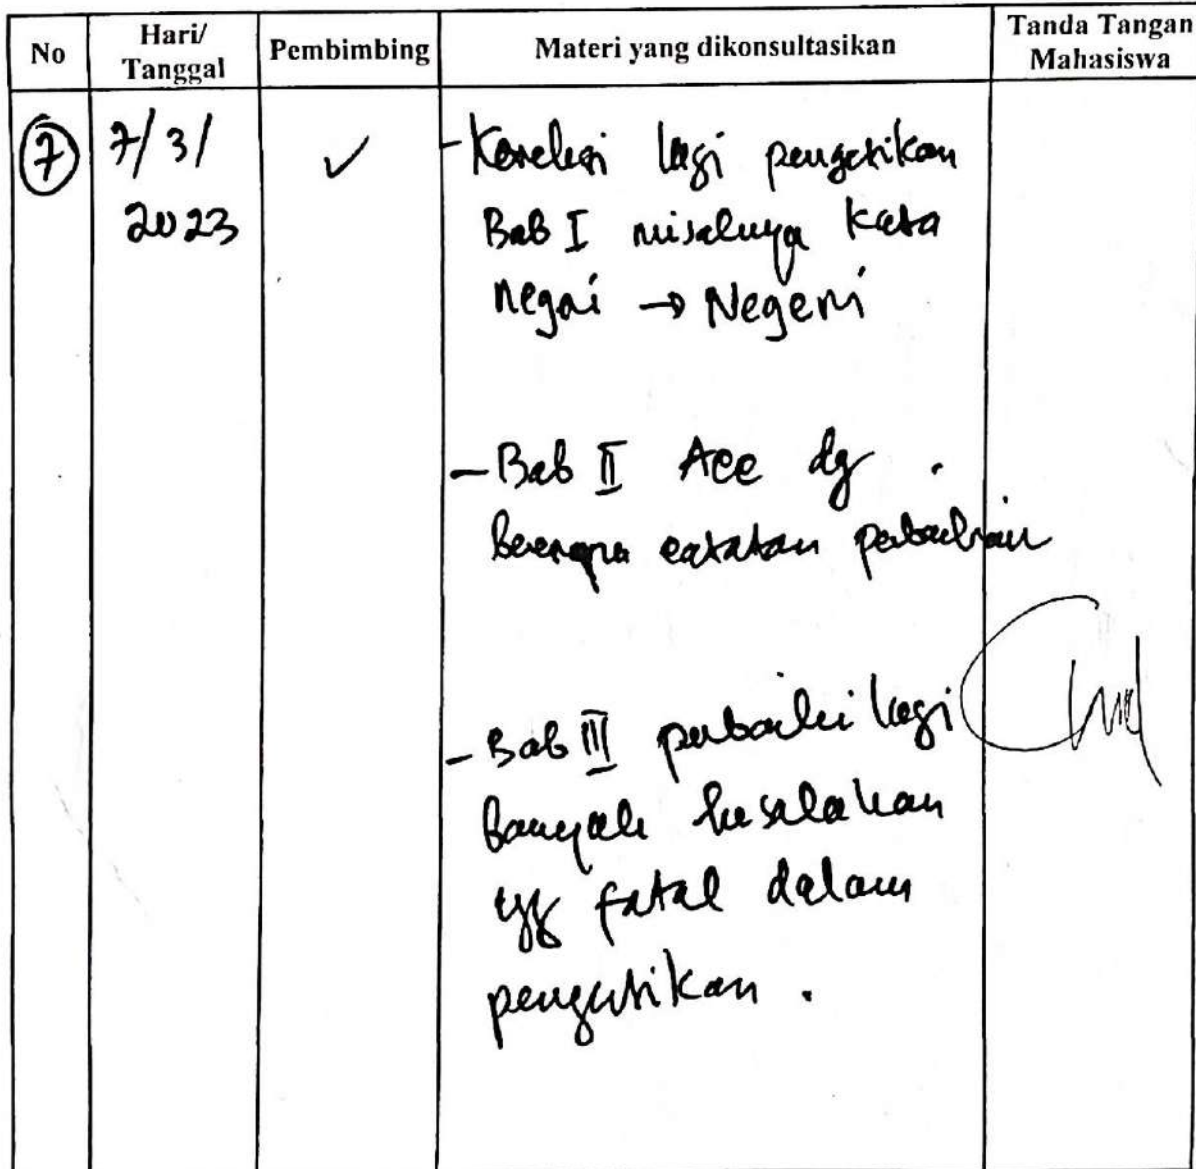 No
Hari/
Tanggal
Pembimbing
Materi yang dikonsultasikan
Tanda Tangan
Mahasiswa
7
7/3/
2023
✓
- Koreksi lagi pengetikan
Bab I misalnya kata
negai → Negeri
- Bab II Acc dg
catatan perbaikan
- Bab III perbaiki lagi
banyak kesalahan
yg fatal dalam
pengetikan.